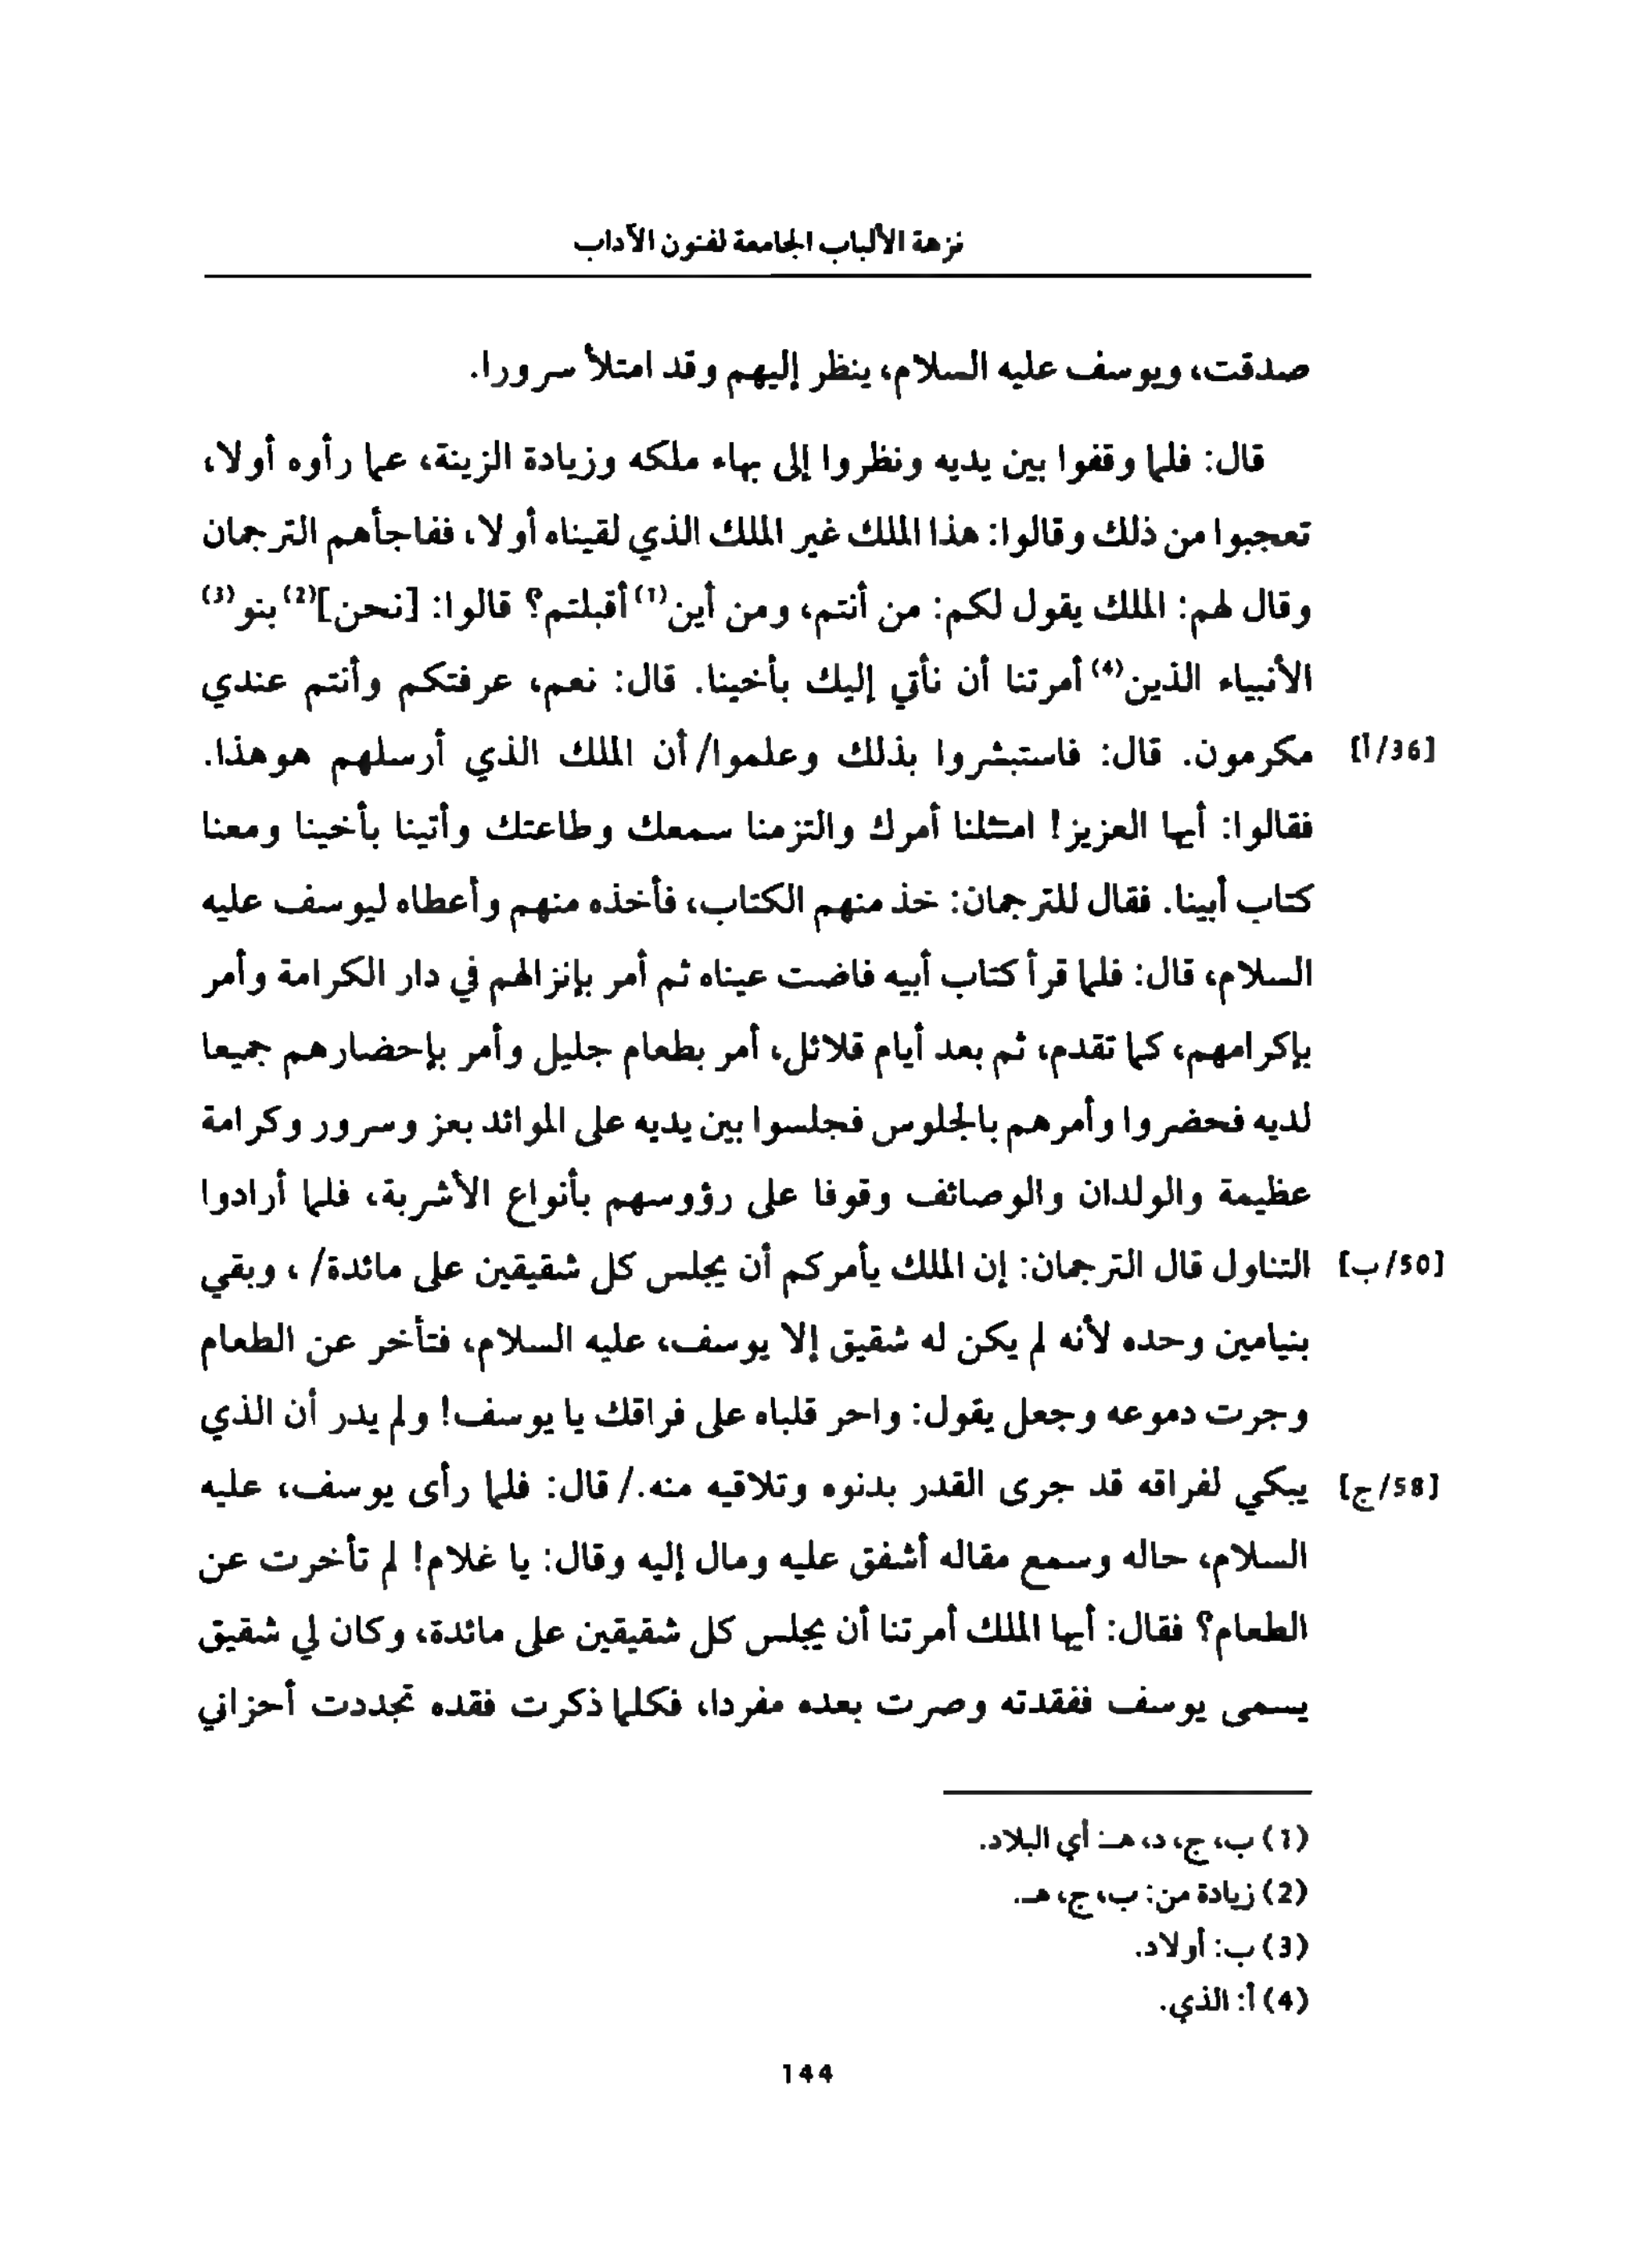 نزهة الألباب الجامعة لفنون الآداب
صدقت، ويوسف عليه السلام، ينظر إليهم وقد امتلأ سرورا.
قال: فلما وقفوا بين يديه ونظروا إلى بهاء ملكه وزيادة الزينة، عما رأوه أولا،
تعجبوا من ذلك وقالوا: هذا الملك غير الملك الذي لقيناه أولا، ففاجأهم الترجمان
وقال لهم: الملك يقول لكم: من أنتم، ومن أين(1) أقبلتم؟ قالوا: [نحن](2) بنو(3)
الأنبياء الذين(4) أمرتنا أن نأتي إليك بأخينا. قال: نعم، عرفتكم وأنتم عندي
[36/أ] مكرمون. قال: فاستبشروا بذلك وعلموا/ أن الملك الذي أرسلهم هوهذا.
فقالوا: أيها العزيز! امتثلنا أمرك والتزمنا سمعك وطاعتك وأتينا بأخينا ومعنا
كتاب أبينا. فقال للترجمان: خذ منهم الكتاب، فأخذه منهم وأعطاه ليوسف عليه
السلام، قال: فلما قرأ كتاب أبيه فاضت عيناه ثم أمر بإنزالهم في دار الكرامة وأمر
بإكرامهم، كما تقدم، ثم بعد أيام قلائل، أمر بطعام جليل وأمر بإحضارهم جميعا
لديه فحضروا وأمرهم بالجلوس فجلسوا بين يديه على الموائد بعز وسرور وكرامة
عظيمة والولدان والوصائف وقوفا على رؤوسهم بأنواع الأشربة، فلما أرادوا
[50/ب] التناول قال الترجمان: إن الملك يأمركم أن يجلس كل شقيقين على مائدة/ ، وبقي
بنيامين وحده لأنه لم يكن له شقيق إلا يوسف، عليه السلام، فتأخر عن الطعام
وجرت دموعه وجعل يقول: واحر قلباه على فراقك يا يوسف! ولم يدر أن الذي
[58/ج] يبكي لفراقه قد جرى القدر بدنوه وتلاقيه منه./ قال: فلما رأى يوسف، عليه
السلام، حاله وسمع مقاله أشفق عليه ومال إليه وقال: يا غلام! لم تأخرت عن
الطعام؟ فقال: أيها الملك أمرتنا أن يجلس كل شقيقين على مائدة، وكان لي شقيق
يسمى يوسف ففقدته وصرت بعده مفردا، فكلما ذكرت فقده تجددت أحزاني
(1) ب، ج، د، هـ: أي البلاد.
(2) زيادة من: ب، ج، هـ.
(3) ب: أولاد.
(4) أ: الذي.
144